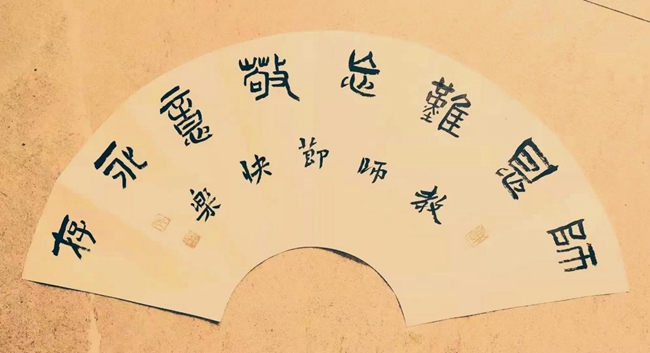 師恩難忘敬意永存
教師節快樂